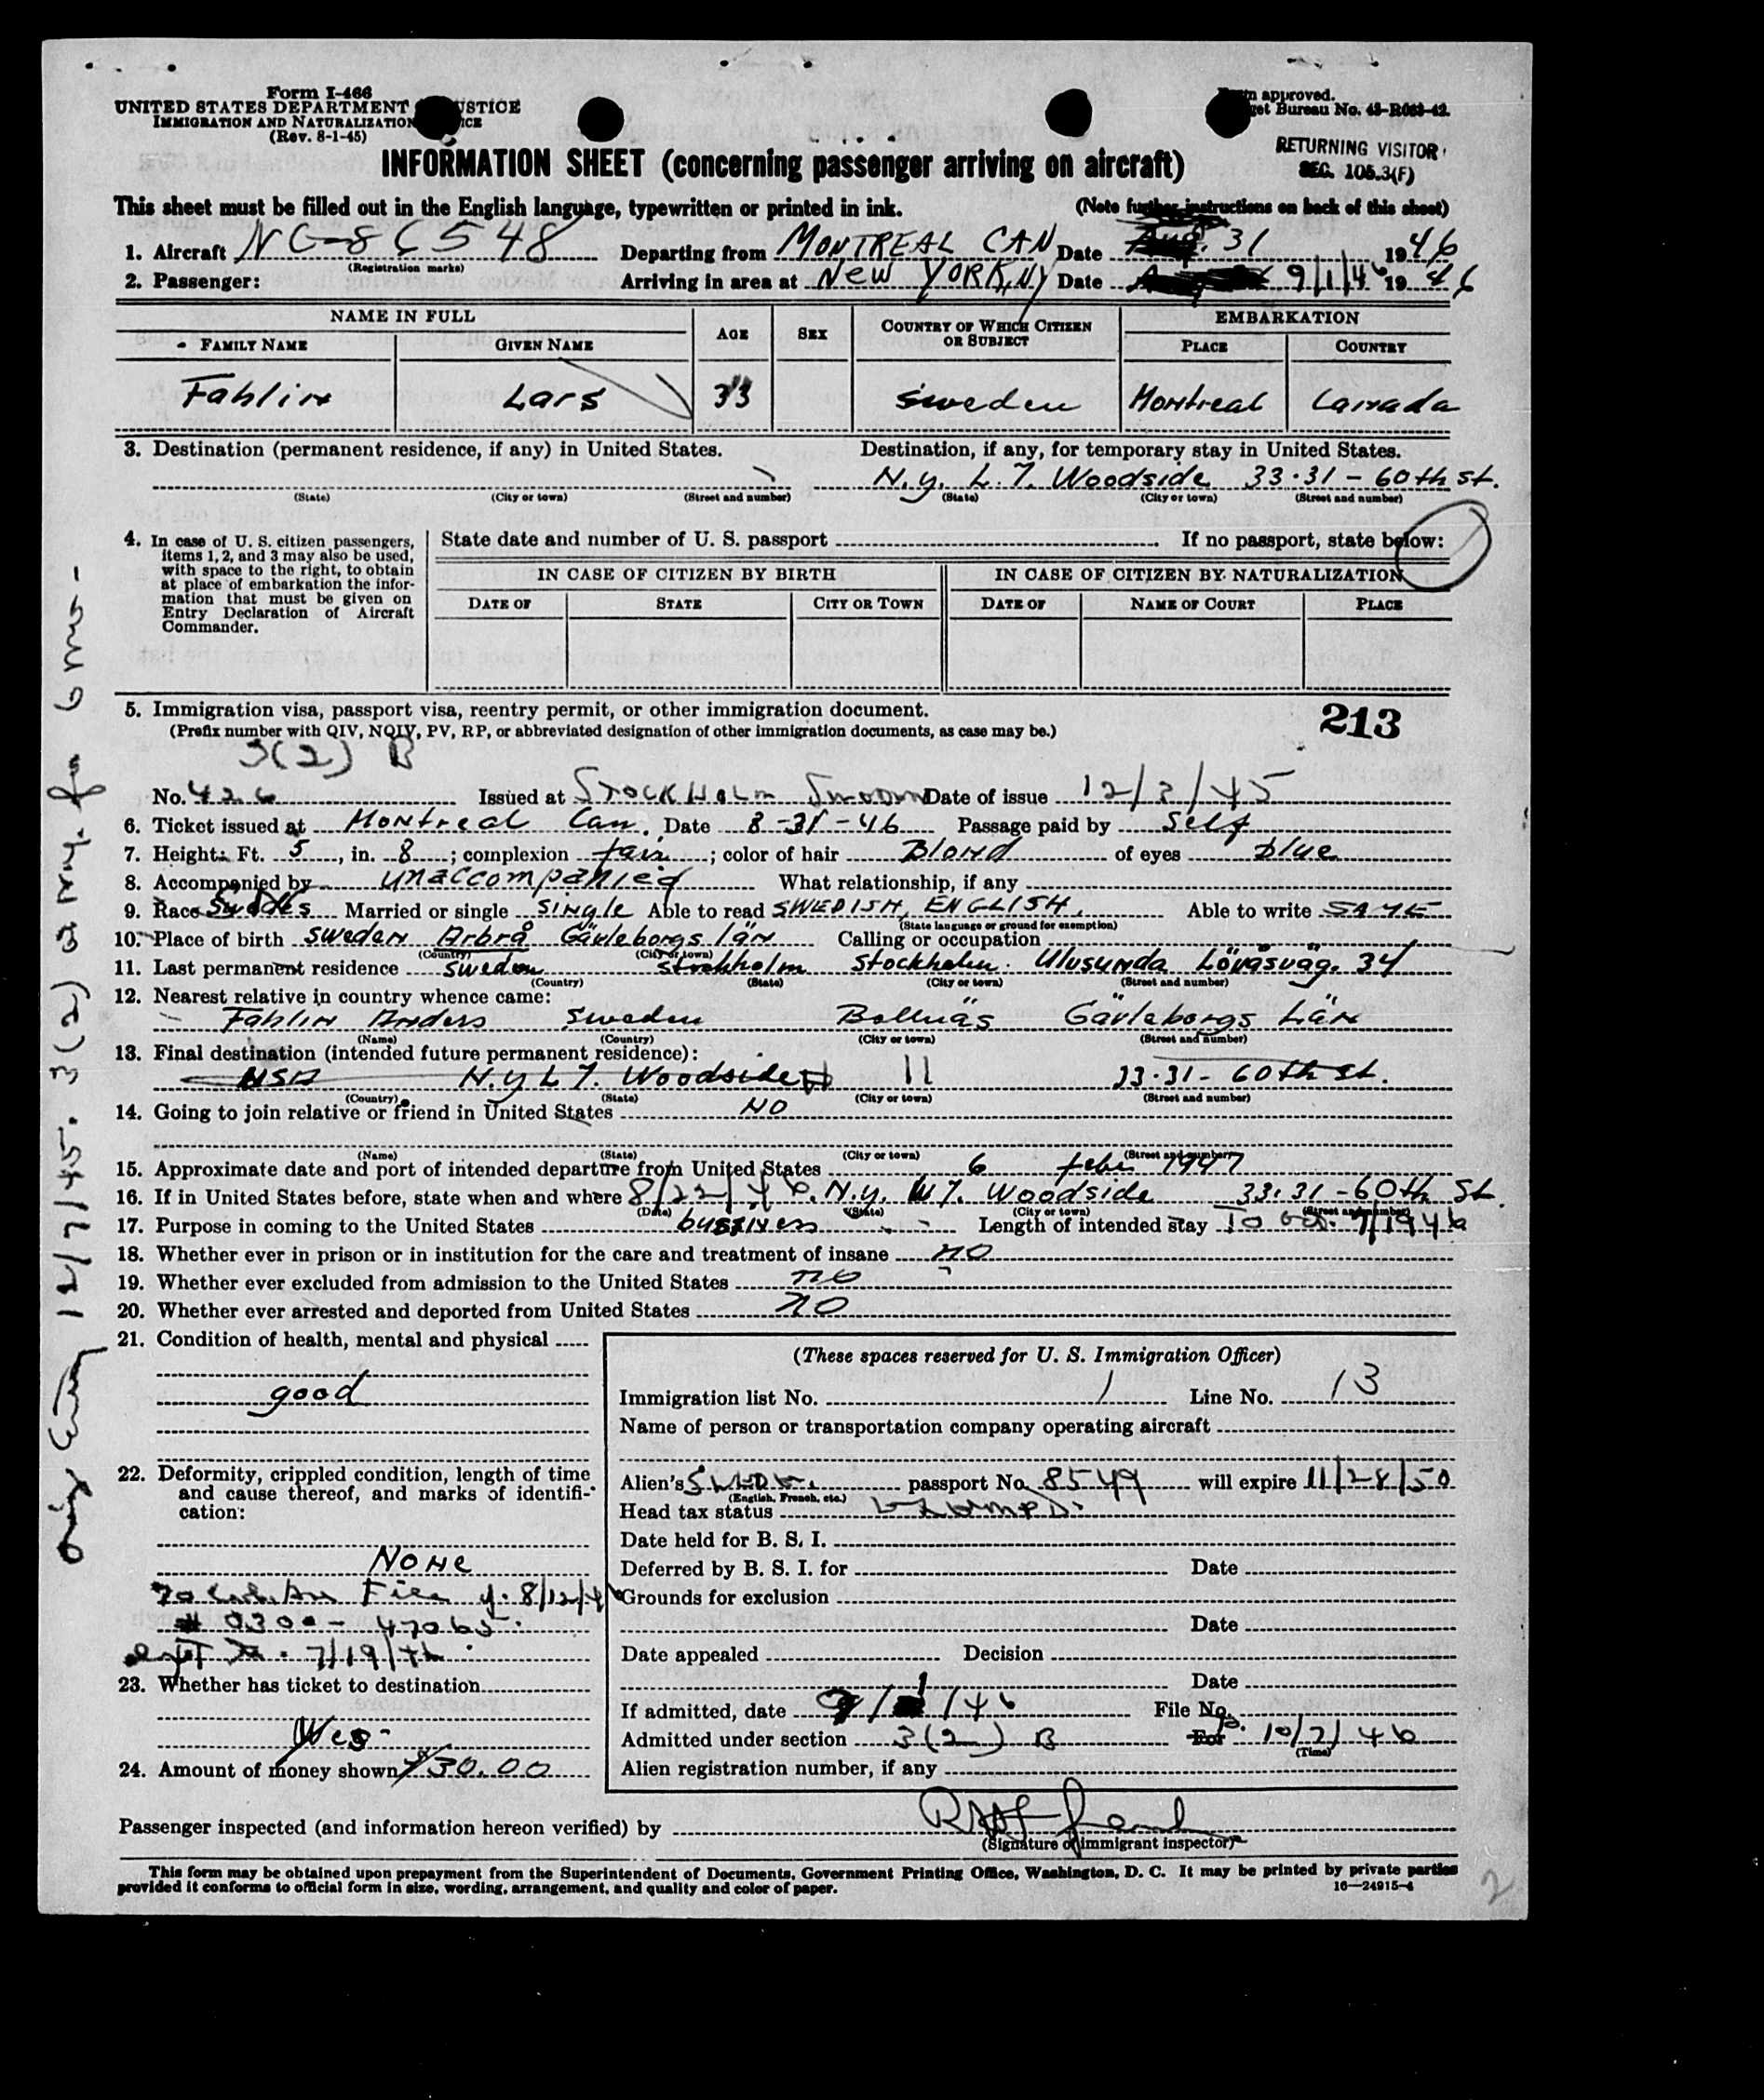 Form I-466
UNITED STATES DEPARTMENT USTICE
IMMIGRATION AND NATURALIZATION ICE
(Rev. 8-1-45)
n approved.
get Bureau No. 43-R063-42.
RETURNING VISITOR
SEC. 105.3(F)
INFORMATION SHEET (concerning passenger arriving on aircraft)
This sheet must be filled out in the English language, typewritten or printed in ink. (Note further instructions on back of this sheet)
1. Aircraft NC-86548 Departing from MONTREAL CAN Date Aug. 31 1946
(Registration marks)
2. Passenger: Arriving in area at New YORK, NY Date 9/1/46 1946
NAME IN FULL AGE SEX COUNTRY OF WHICH CITIZEN OR SUBJECT EMBARKATION
FAMILY NAME GIVEN NAME PLACE COUNTRY
Fahlin Lars 33 Sweden Montreal Canada
3. Destination (permanent residence, if any) in United States. Destination, if any, for temporary stay in United States.
N.y. L.I. Woodside 33-31-60th st.
(State) (City or town) (Street and number) (State) (City or town) (Street and number)
4. In case of U. S. citizen passengers, items 1, 2, and 3 may also be used, with space to the right, to obtain at place of embarkation the information that must be given on Entry Declaration of Aircraft Commander.
State date and number of U. S. passport If no passport, state below:
IN CASE OF CITIZEN BY BIRTH IN CASE OF CITIZEN BY NATURALIZATION
DATE OF STATE CITY OR TOWN DATE OF NAME OF COURT PLACE
5. Immigration visa, passport visa, reentry permit, or other immigration document. 213
(Prefix number with QIV, NQIV, PV, RP, or abbreviated designation of other immigration documents, as case may be.)
3(2) B
No. 426 Issued at STOCKHOLM Sweden Date of issue 12/3/45
6. Ticket issued at Montreal Can. Date 8-31-46 Passage paid by Self
7. Height: Ft. 5, in. 8; complexion fair; color of hair Blond of eyes blue
8. Accompanied by unaccompanied What relationship, if any
9. Race Married or single Single Able to read SWEDISH, ENGLISH. Able to write SAME
(State language or ground for exemption)
10. Place of birth Sweden Arbrå Gävleborgs län Calling or occupation
(Country) (City or town)
11. Last permanent residence Sweden Stockholm Stockholm. Ulvsunda Lövåsväg. 34
(Country) (State) (City or town) (Street and number)
12. Nearest relative in country whence came:
Fahlin Anders Sweden Bollnäs Gävleborgs Län
(Name) (Country) (City or town) (Street and number)
13. Final destination (intended future permanent residence):
USA N.y L I. Woodside 11 33-31-60th st.
(Country) (State) (City or town) (Street and number)
14. Going to join relative or friend in United States NO
(Name) (State) (City or town) (Street and number)
15. Approximate date and port of intended departure from United States 6 febr 1947
16. If in United States before, state when and where 8/22/46. N.y. Woodside 33.31-60th St.
(Date) (State) (City or town) (Street and number)
17. Purpose in coming to the United States business Length of intended stay To Oct. 7/1946
18. Whether ever in prison or in institution for the care and treatment of insane no
19. Whether ever excluded from admission to the United States no
20. Whether ever arrested and deported from United States no
21. Condition of health, mental and physical
good
22. Deformity, crippled condition, length of time and cause thereof, and marks of identification:
None
File 8/12/4
# 0300-47065.
7/19/46
23. Whether has ticket to destination
Yes
24. Amount of money shown $30.00
(These spaces reserved for U. S. Immigration Officer)
Immigration list No. 1 Line No. 13
Name of person or transportation company operating aircraft
Alien's passport No. 8549 will expire 11/28/50
(English, French, etc.)
Head tax status
Date held for B. S. I.
Deferred by B. S. I. for Date
Grounds for exclusion
Date
Date appealed Decision
Date
If admitted, date 9/1/46 File No.
Admitted under section 3(2) B For 10/7/46
(Time)
Alien registration number, if any
Passenger inspected (and information hereon verified) by
(Signature of immigrant inspector)
This form may be obtained upon prepayment from the Superintendent of Documents, Government Printing Office, Washington, D. C. It may be printed by private parties
provided it conforms to official form in size, wording, arrangement, and quality and color of paper. 16—24915-4
2
12/7/45. 3(2) a 6 mos-